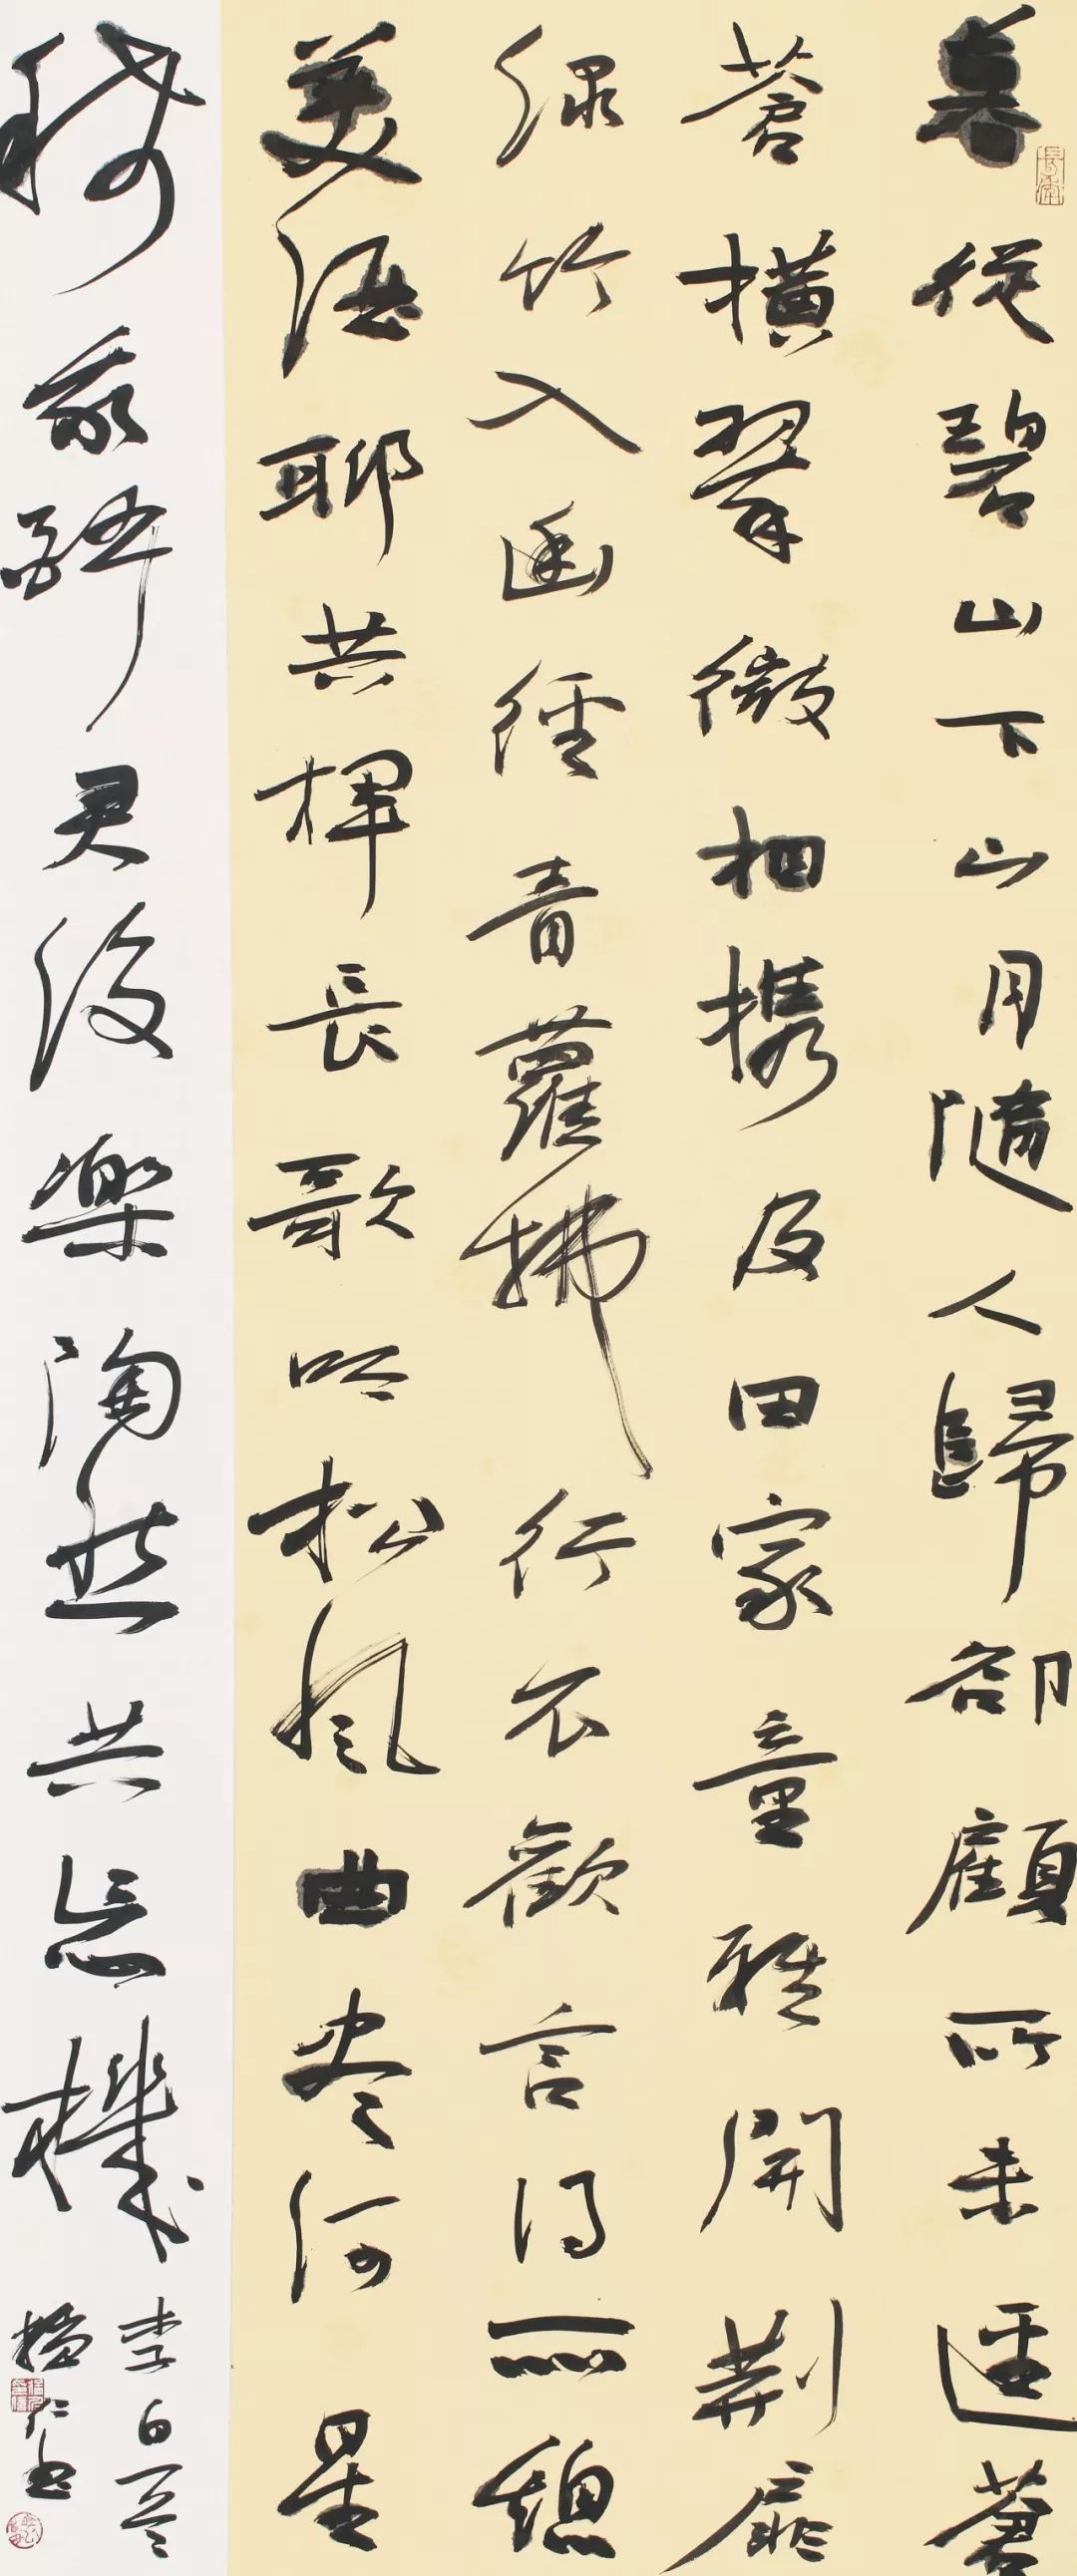 暮從碧山下山月隨人歸却顧所来逕蒼
蒼橫翠微相携及田家童稚開荆扉
緑竹入幽徑青蘿拂行衣歡言得所憩
美酒聊共揮長歌吟松風曲尽河星
稀我醉君復樂陶然共忘機
李白
仁书